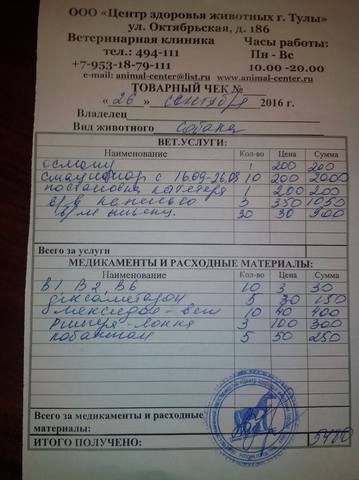 ООО «Центр здоровья животных г. Тулы»
ул. Октябрьская, д. 186
Ветеринарная клиника Часы работы:
тел.: 494-111 Пн - Вс
+7-953-18-79-111 10.00 -20.00
e-mail: animal-center@list.ru www.animal-center.ru
ТОВАРНЫЙ ЧЕК №
« 26 » сентября 2016 г.
Владелец
Вид животного собака
ВЕТ.УСЛУГИ:
Наименование Кол-во Цена Сумма
осмотр 1 200 200
стационар с 16.09-26.09 10 200 2000
постановка катетера 1 200 200
в/в капельно 3 350 1050
в/м инъекц. 30 30 900
Всего за услуги
МЕДИКАМЕНТЫ И РАСХОДНЫЕ МАТЕРИАЛЫ:
Наименование Кол-во Цена Сумма
В1 В2 В6 10 3 30
дексаметазон 5 30 150
10 40 400
Рингера-Локка 3 100 300
5 50 250
Всего за медикаменты и расходные
материалы:
ИТОГО ПОЛУЧЕНО: 5480